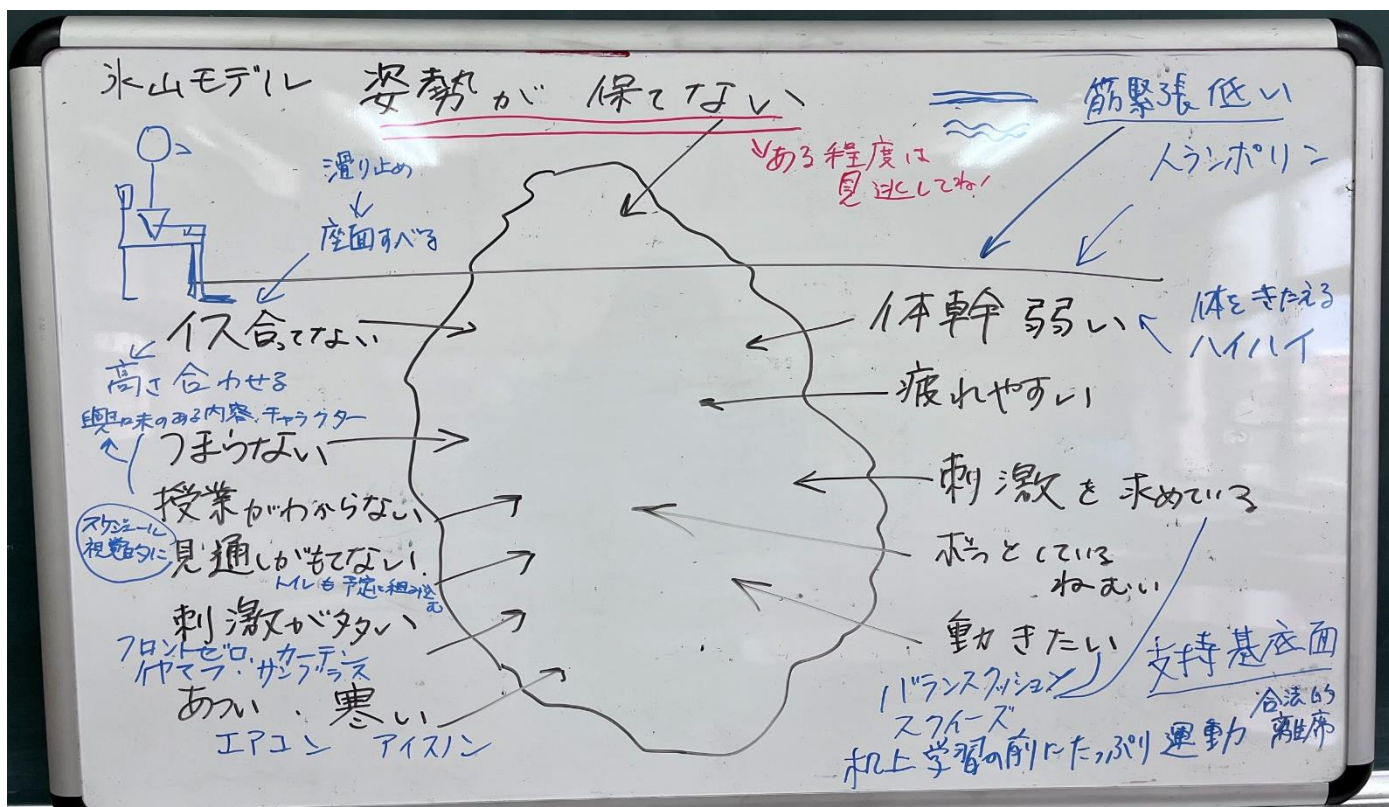 氷山モデル 姿勢が 保てない
筋緊張低い
トランポリン
ある程度は
見逃してね!
滑り止め
座面すべる
イス合ってない
高さ合わせる
興味のある内容、キャラクター
つまらない
授業がわからない
スケジュール
視覚的に
見通しがもてない
トイレも予定に組み込
む
刺激が多い
フロントゼロ・カーテン
イヤマフ・サングラス
あつい・寒い
エアコン アイスノン
体幹弱い
体をきたえる
ハイハイ
疲れやすい
刺激を求めている
ボーっとしている
ねむい
動きたい
バランスクッション
スクイーズ
支持基底面
合法的
離席
机上学習の前にたっぷり運動